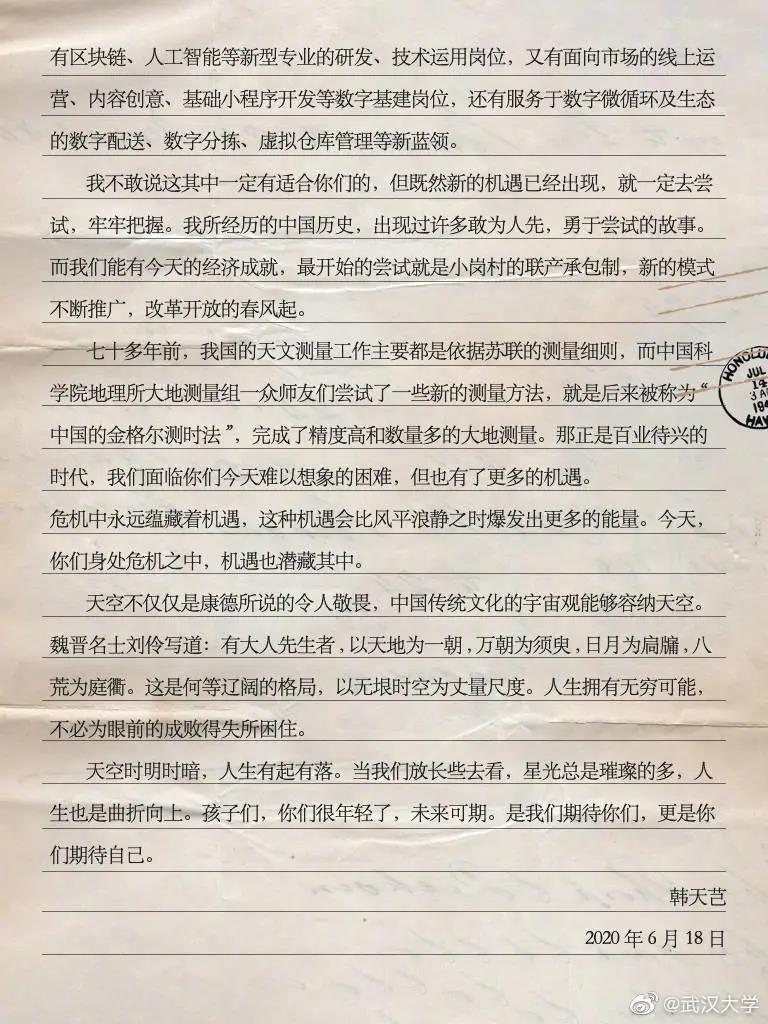 有区块链、人工智能等新型专业的研发、技术运用岗位，又有面向市场的线上运
营、内容创意、基础小程序开发等数字基建岗位，还有服务于数字微循环及生态
的数字配送、数字分拣、虚拟仓库管理等新蓝领。
我不敢说这其中一定有适合你们的，但既然新的机遇已经出现，就一定去尝
试，牢牢把握。我所经历的中国历史，出现过许多敢为人先，勇于尝试的故事。
而我们能有今天的经济成就，最开始的尝试就是小岗村的联产承包制，新的模式
不断推广，改革开放的春风起。
七十多年前，我国的天文测量工作主要都是依据苏联的测量细则，而中国科
学院地理所大地测量组一众师友们尝试了一些新的测量方法，就是后来被称为“
中国的金格尔测时法”，完成了精度高和数量多的大地测量。那正是百业待兴的
时代，我们面临你们今天难以想象的困难，但也有了更多的机遇。
危机中永远蕴藏着机遇，这种机遇会比风平浪静之时爆发出更多的能量。今天，
你们身处危机之中，机遇也潜藏其中。
天空不仅仅是康德所说的令人敬畏，中国传统文化的宇宙观能够容纳天空。
魏晋名士刘伶写道：有大人先生者，以天地为一朝，万朝为须臾，日月为扃牖，八
荒为庭衢。这是何等辽阔的格局，以无垠时空为丈量尺度。人生拥有无穷可能，
不必为眼前的成败得失所困住。
天空时明时暗，人生有起有落。当我们放长些去看，星光总是璀璨的多，人
生也是曲折向上。孩子们，你们很年轻了，未来可期。是我们期待你们，更是你
们期待自己。
韩天芑
2020 年 6 月 18 日
HONOLU
JUL
14
3 A
194
HAW
@武汉大学